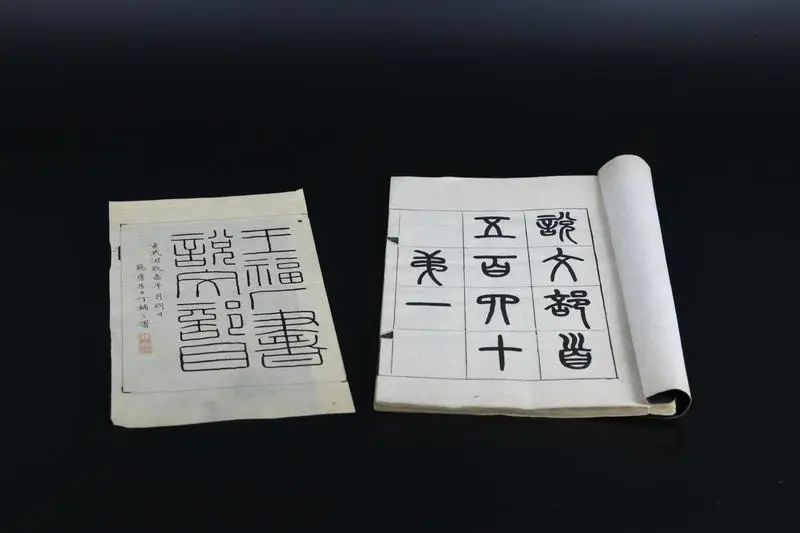 王福厂書
說文部目
丁輔之署
說文部首
五百四十
弟一